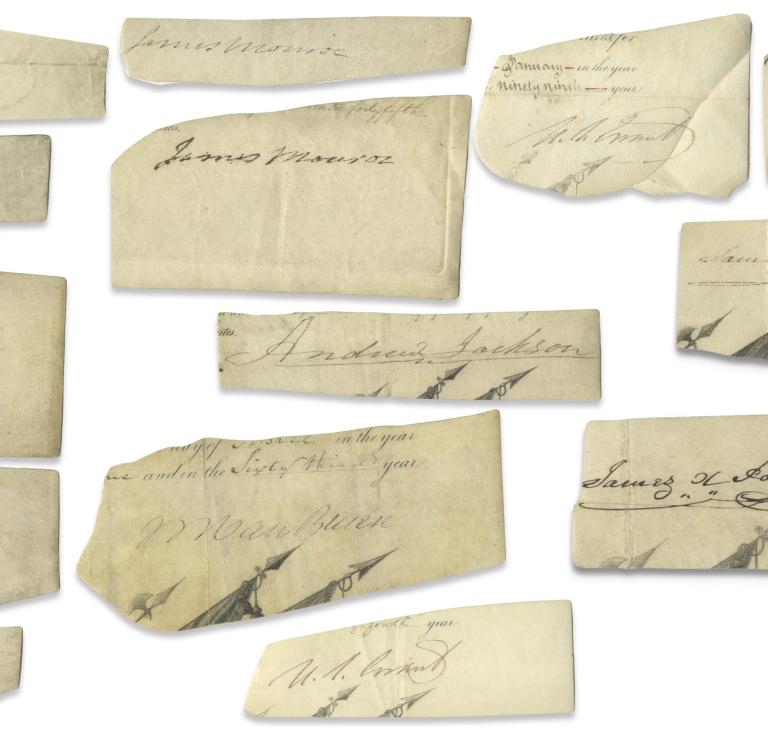 James Monroe
in the forty fifth
James Monroe
January in the year
ninety ninth year
U. S. Grant
ates.
Andrew Jackson
day of in the year
and in the Sixty third year
M Van Buren
James K Po
fourth year
U. S. Grant